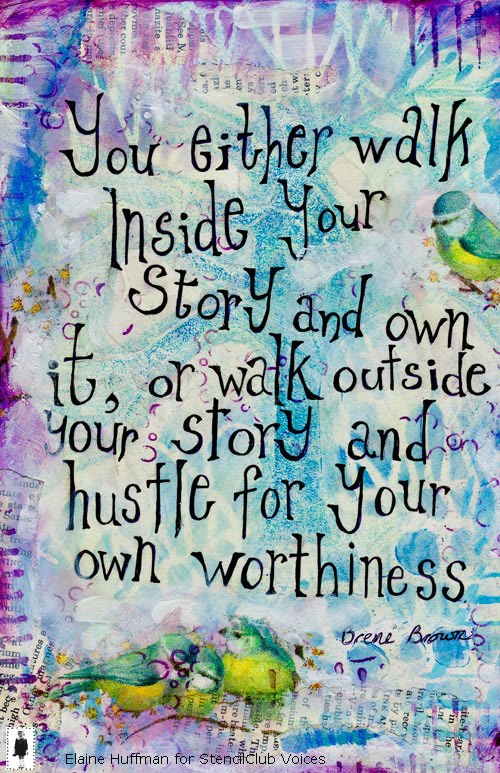 You either walk
Inside your
Story and own
it, or walk outside
your story and
hustle for your
own worthiness
Drene Brown
Elaine Huffman for StencilClub Voices